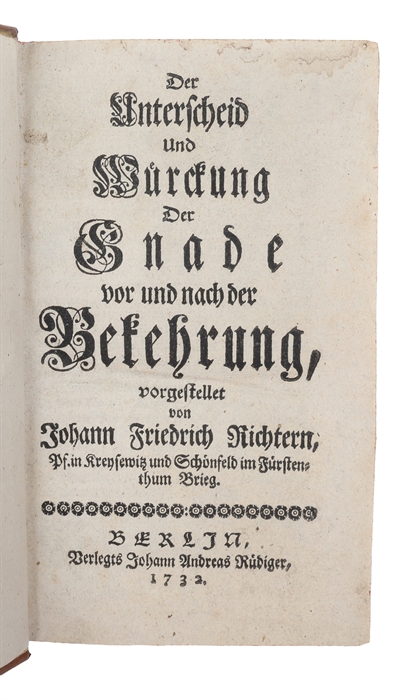 Der
Unterscheid
Und
Würckung
Der
Gnade
vor und nach der
Bekehrung,
vorgestellet
von
Johann Friedrich Richtern,
Pf. in Kreysewitz und Schönfeld im Fürsten-
thum Brieg.
BERLIN,
Verlegts Johann Andreas Rüdiger,
1732.